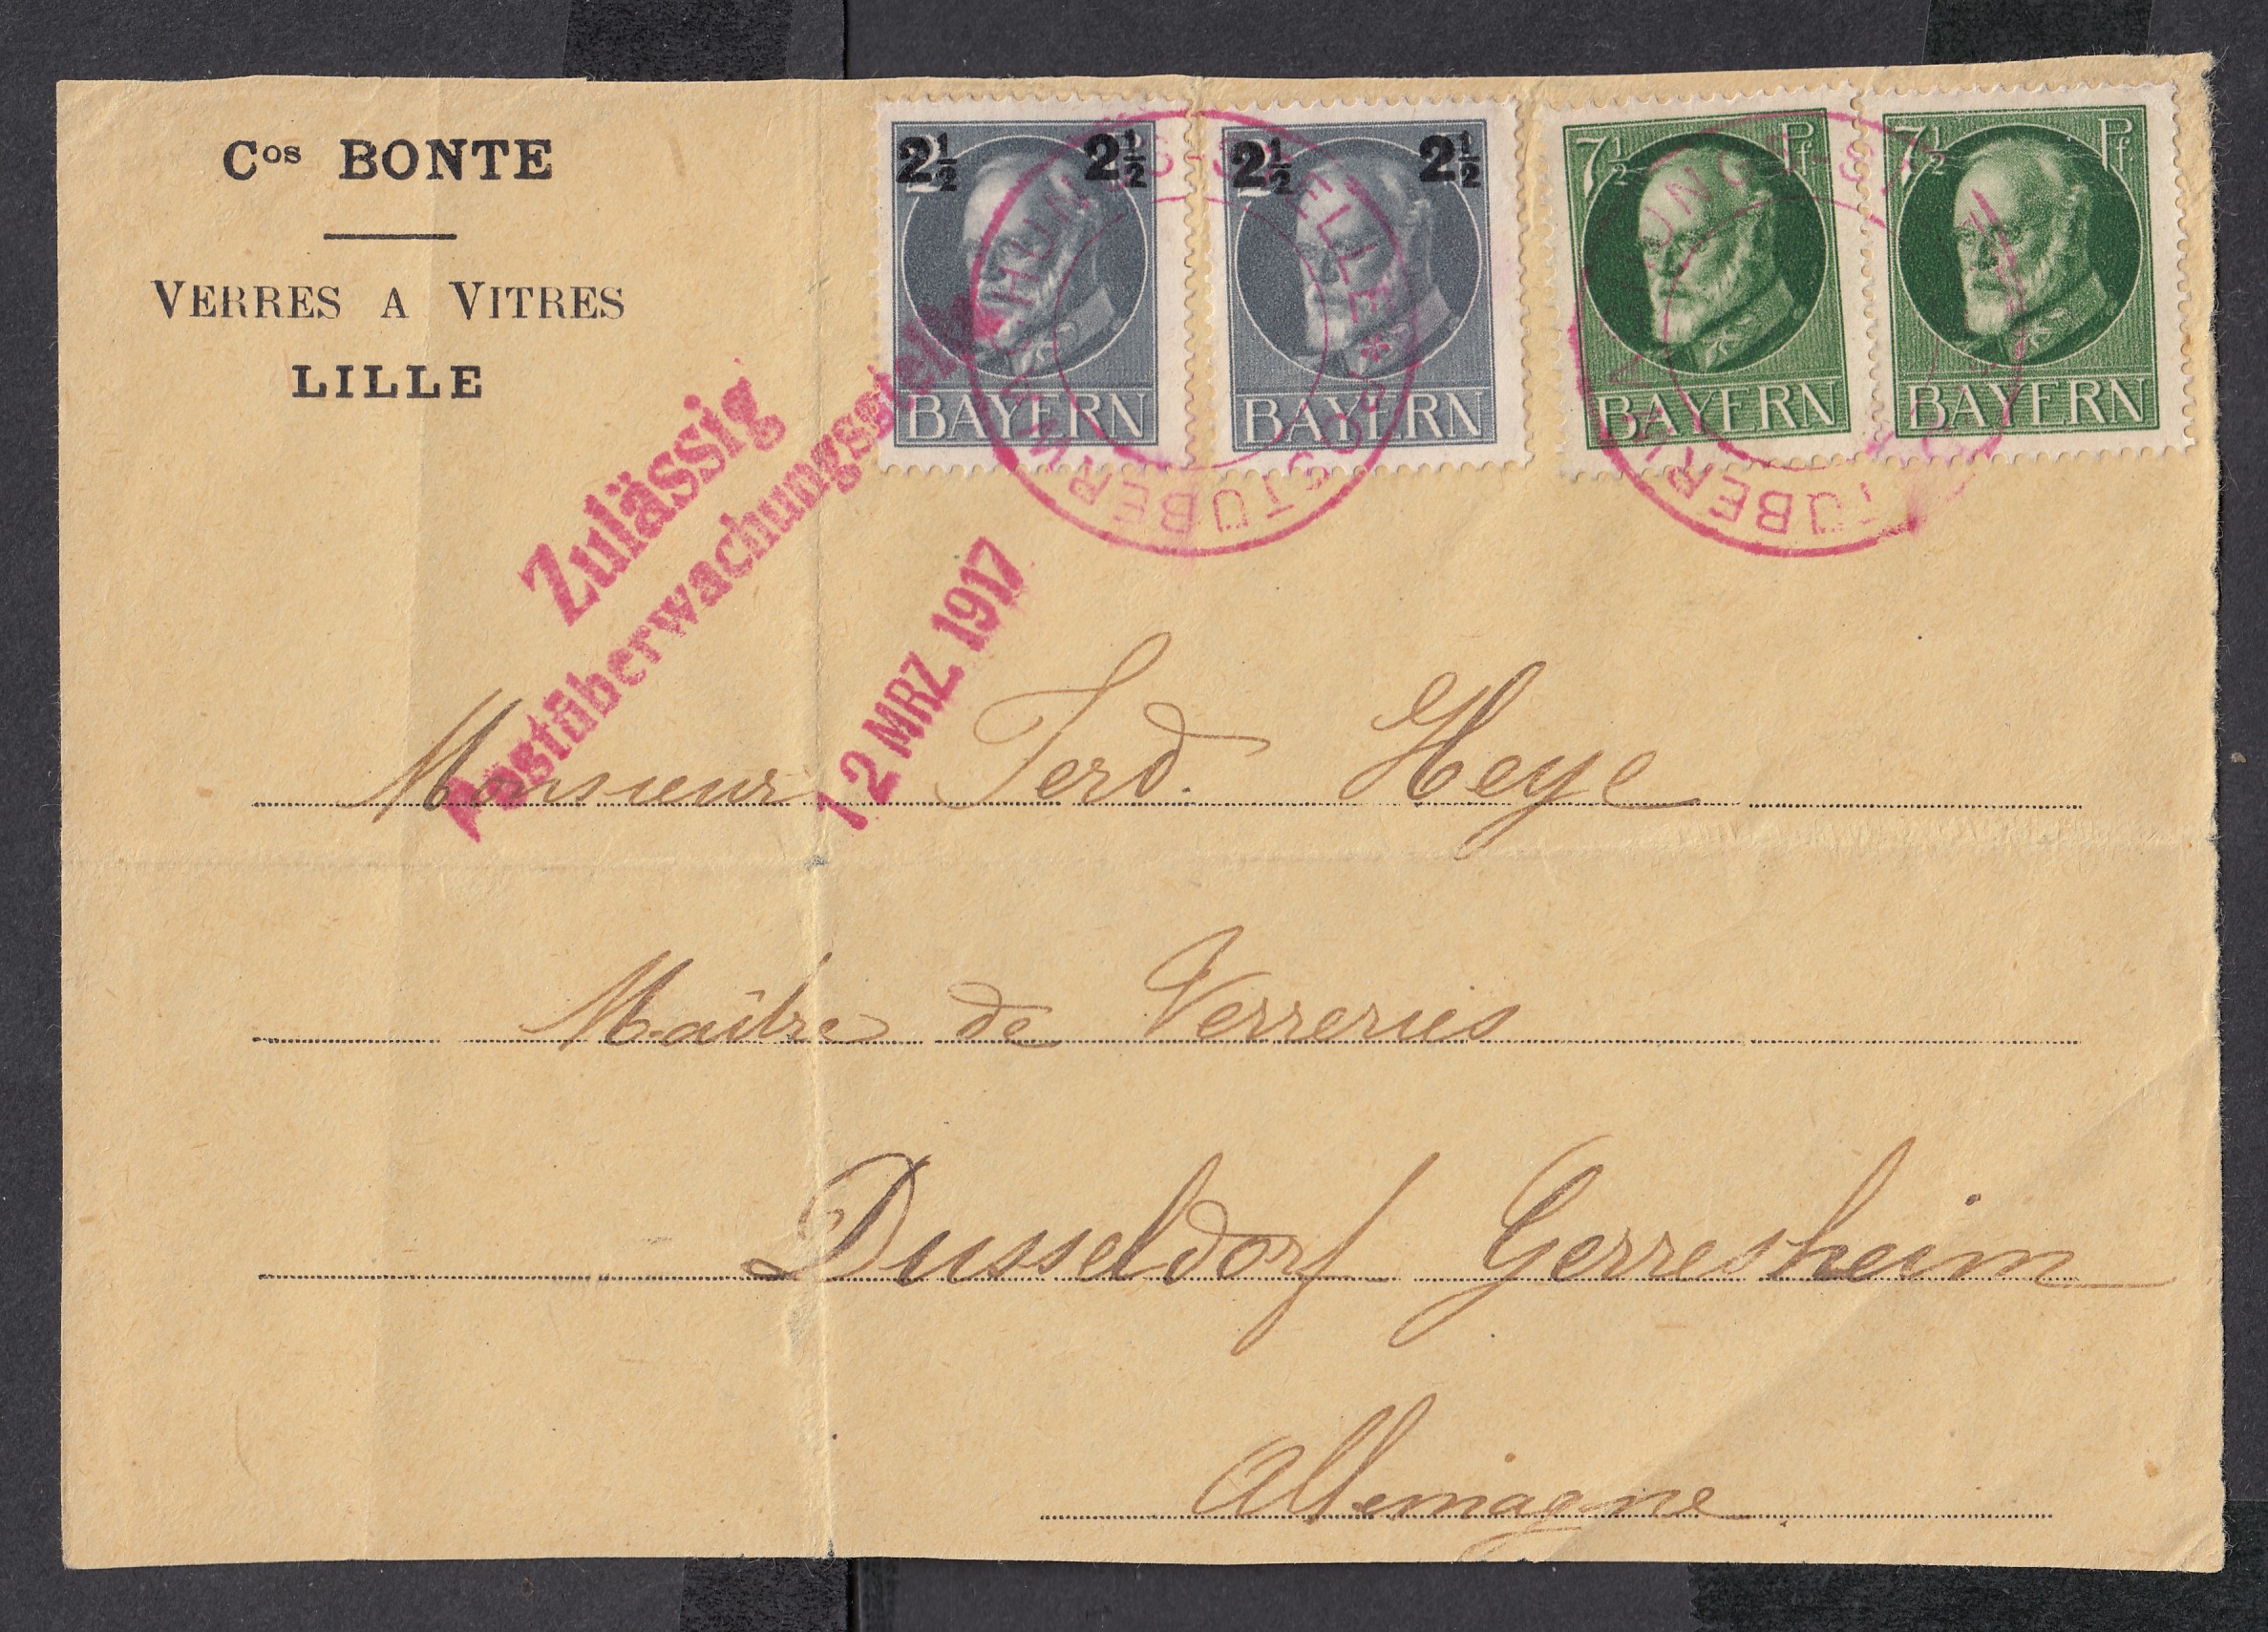 Cos BONTE
VERRES A VITRES
LILLE
2½ 2½
BAYERN
2½ 2½
BAYERN
7½ Pf.
BAYERN
7½ Pf.
BAYERN
POSTÜBERWACHUNGS-STELLE *
POSTÜBERWACHUNGS-ST
Zulässig
Postüberwachungsstelle
12 MRZ. 1917
Monsieur Ferd. Heye
Maître de Verreries
Dusseldorf Gerresheim
Allemagne